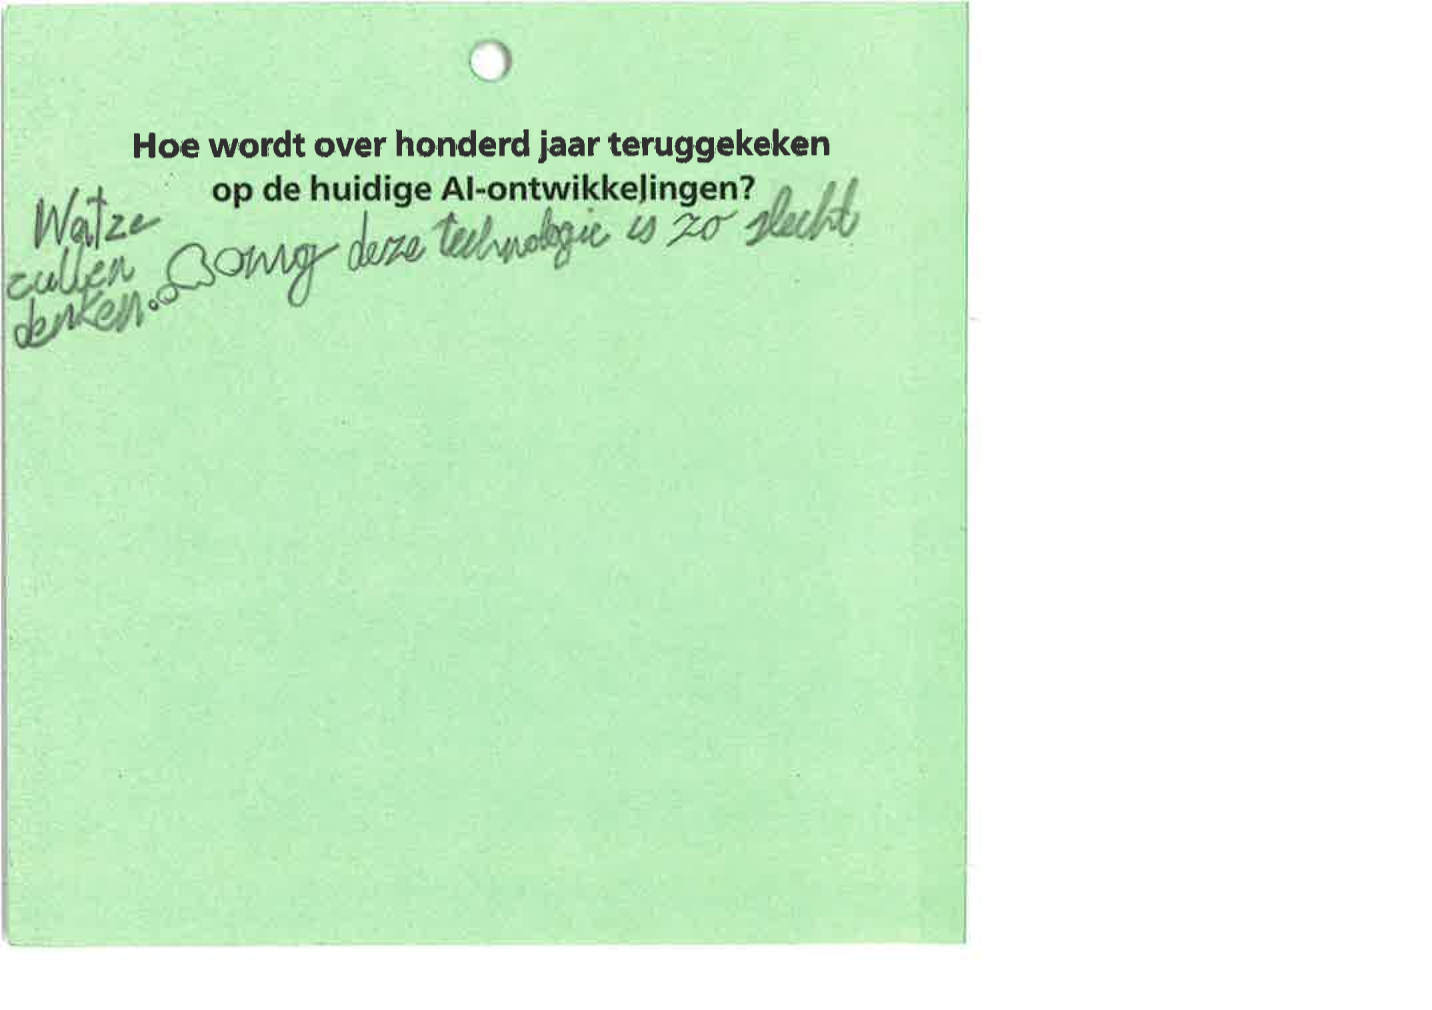 Hoe wordt over honderd jaar teruggekeken
op de huidige AI-ontwikkelingen?
Wat ze
zullen
denken.
omg deze technologie is zo slecht